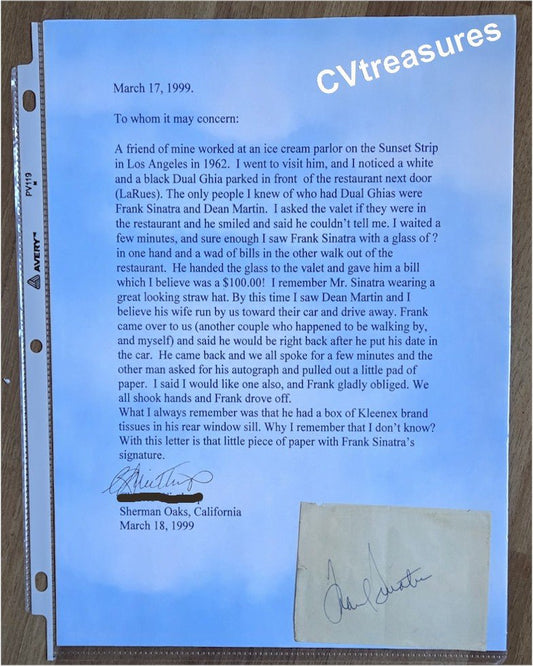 CVtreasures
March 17, 1999.
To whom it may concern:
A friend of mine worked at an ice cream parlor on the Sunset Strip
in Los Angeles in 1962.  I went to visit him, and I noticed a white
and a black Dual Ghia parked in front  of the restaurant next door
(LaRues). The only people I knew of who had Dual Ghias were
Frank Sinatra and Dean Martin.  I asked the valet if they were in
the restaurant and he smiled and said he couldn't tell me. I waited a
few minutes, and sure enough I saw Frank Sinatra with a glass of ?
in one hand and a wad of bills in the other walk out of the
restaurant.  He handed the glass to the valet and gave him a bill
which I believe was a $100.00!  I remember Mr. Sinatra wearing a
great looking straw hat. By this time I saw Dean Martin and I
believe his wife run by us toward their car and drive away. Frank
came over to us (another couple who happened to be walking by,
and myself) and said he would be right back after he put his date in
the car.  He came back and we all spoke for a few minutes and the
other man asked for his autograph and pulled out a little pad of
paper.  I said I would like one also, and Frank gladly obliged. We
all shook hands and Frank drove off.
What I always remember was that he had a box of Kleenex brand
tissues in his rear window sill. Why I remember that I don't know?
With this letter is that little piece of paper with Frank Sinatra's
signature.
Sherman Oaks, California
March 18, 1999
Frank Sinatra
AVERY™
PV119